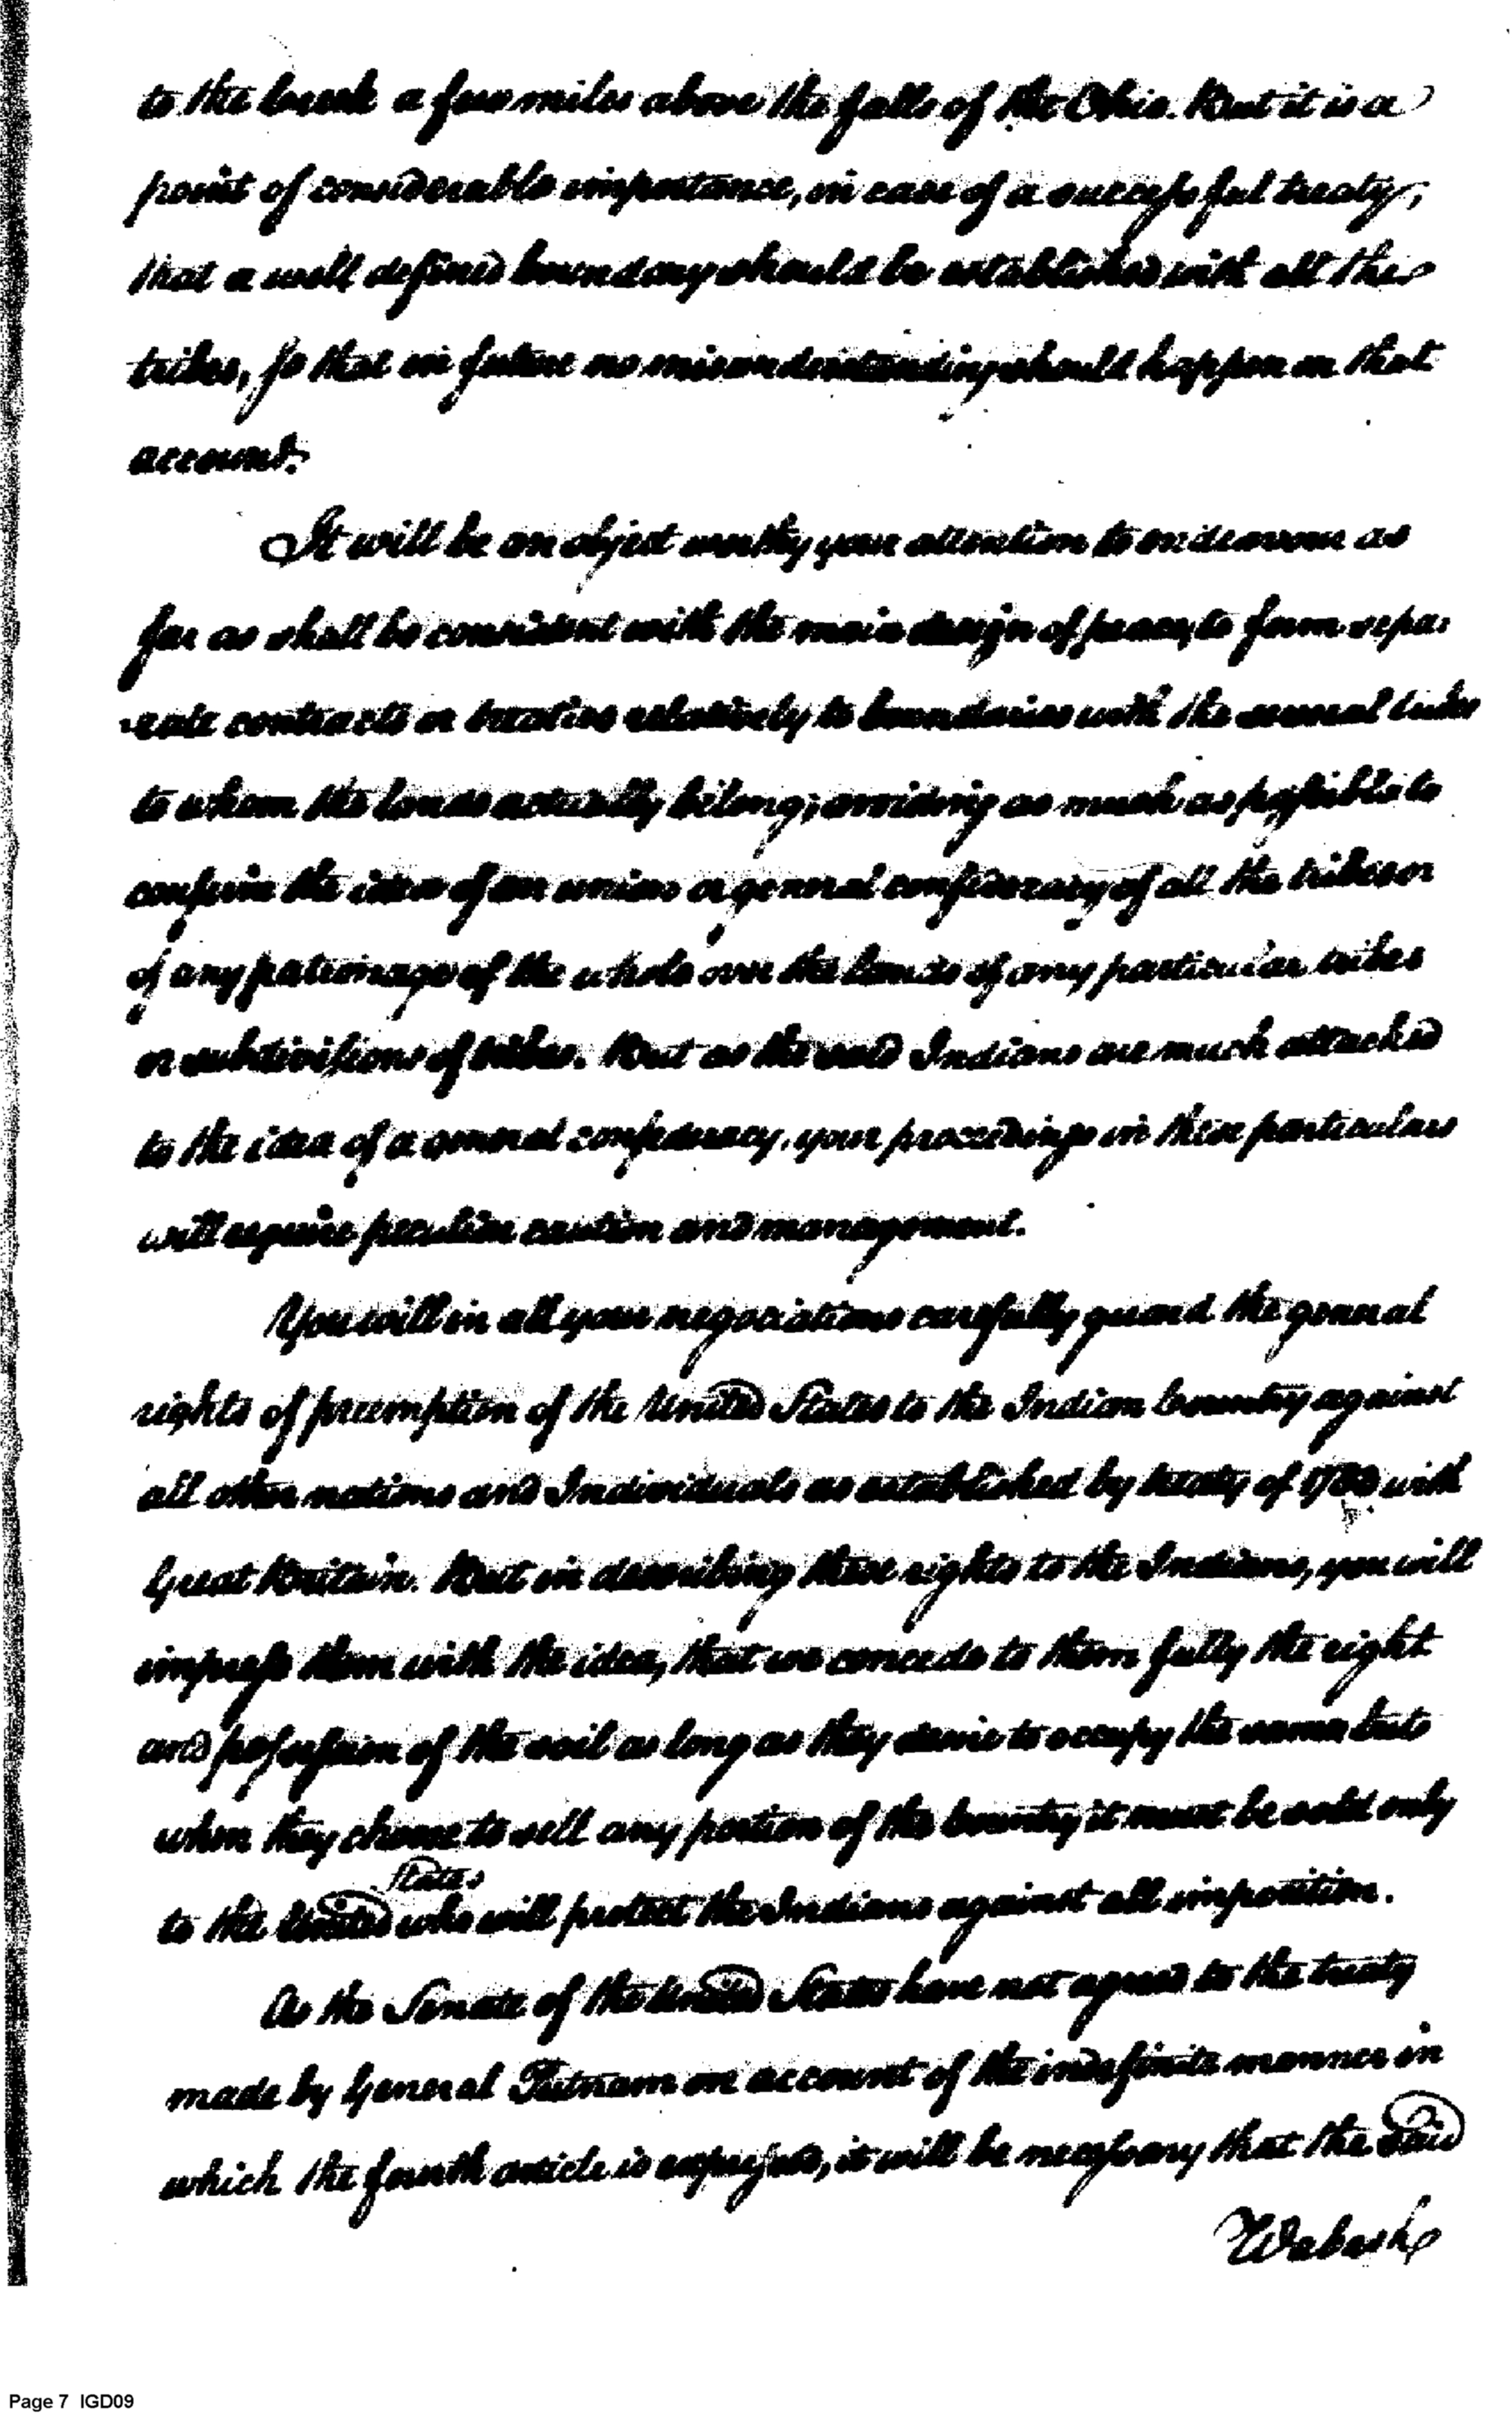 to the break a few miles above the falls of the Ohio. But it is a
point of considerable importance, in case of a successful treaty,
that a well defined boundary should be established with all the
tribes, so that in future no misunderstanding should happen on that
account.
It will be an object worthy your attention to endeavour as
far as shall be consistent with the main design of peace, to form sepa:
:rate contracts or treaties relatively to boundaries with the several tribes
to whom the lands actually belong; avoiding as much as possible to
confirm the idea of an union or general confederacy of all the tribes or
of any patronage of the whole over the lands of any particular tribes
or subdivisions of tribes. But as the said Indians are much attached
to the idea of a general confederacy, your proceedings in these particulars
will require peculiar caution and management.
You will in all your negociations carefully guard the general
rights of preemption of the United States to the Indian Country against
all other nations and Individuals as established by treaty of 1783 with
Great Britain. But in describing these rights to the Indians, you will
impress them with the idea, that we concede to them fully the right
and possession of the soil as long as they desire to occupy the same but
when they choose to sell any portion of the Country it must be sold only
States
to the United who will protect the Indians against all imposition.
As the Senate of the United States have not agreed to the treaty
made by General Putnam on account of the indefinite manner in
which the fourth article is expressed, it will be necessary that the said
Wabash
Page 7 IGD09